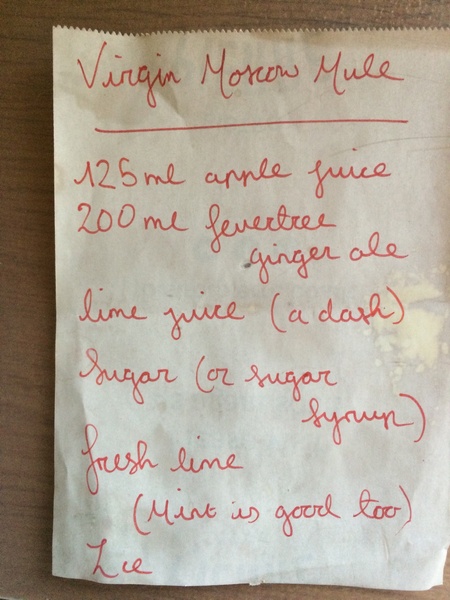 Virgin Moscow Mule
125ml apple juice
200ml fevertree
ginger ale
lime juice (a dash)
Sugar (or sugar
syrup)
fresh lime
(Mint is good too)
Ice